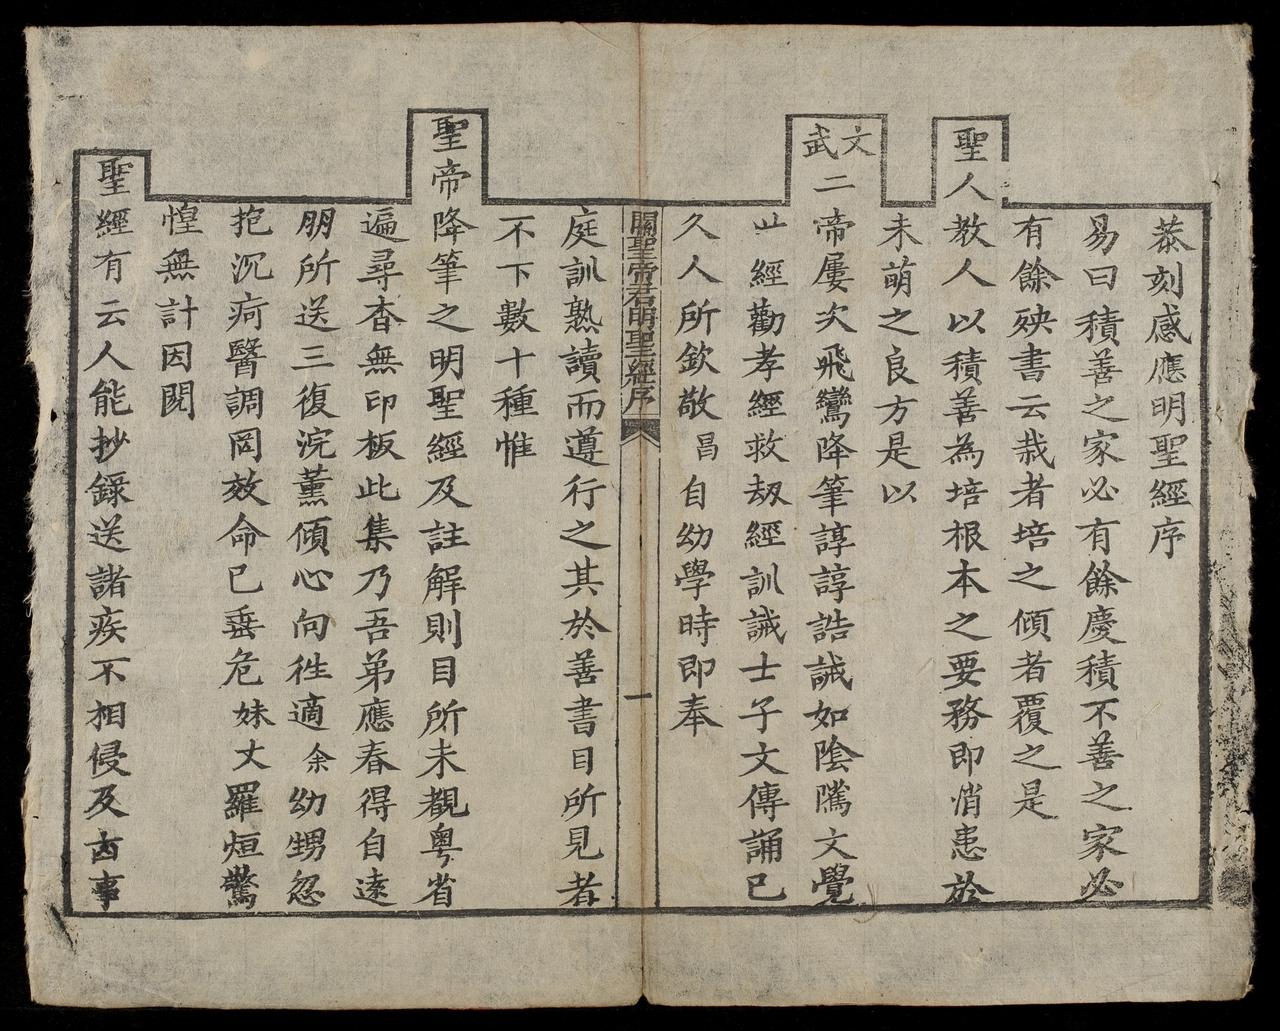 恭刻感應明聖經序
易曰積善之家必有餘慶積不善之家必
有餘殃書云栽者培之傾者覆之是
聖人教人以積善為培根本之要務即消患於
未萌之良方是以
文武二帝屢次飛鸞降筆諄諄誥誡如隂隲文覺
世經勸孝經救刼經訓誡士子文傳誦已
久人所欽敬昌自幼學時即奉
關聖帝君明聖經序
一
庭訓熟讀而遵行之其於善書目所見者
不下數十種惟
聖帝降筆之明聖經及註解則目所未覩粤省
遍尋杳無印板此集乃吾弟應春得自遠
朋所送三復浣薰傾心向徃適余幼甥忽
抱沉疴醫調罔效命已垂危妹丈羅烜驚
惶無計因閱
聖經有云人能抄錄送諸疾不相侵及古事